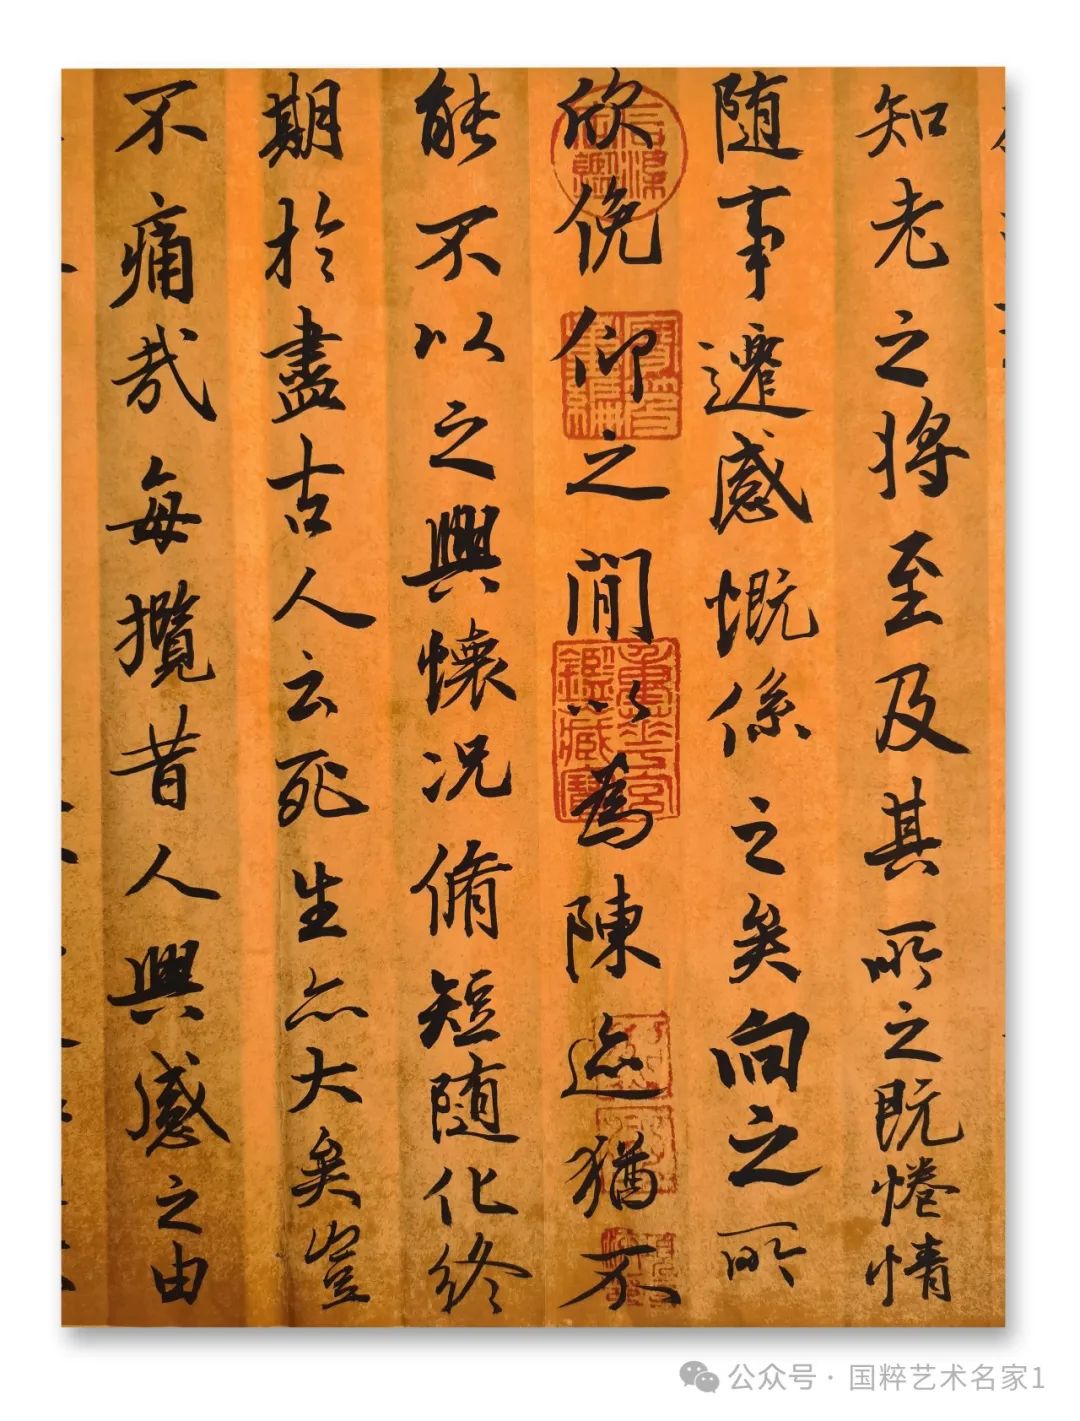 知老之将至及其所之既惓情
随事遷感慨係之矣向之所
欣俛仰之間以為陳迹猶不
能不以之興懷况脩短随化終
期於盡古人云死生亦大矣豈
不痛哉每攬昔人興感之由
公众号 · 国粹艺术名家1